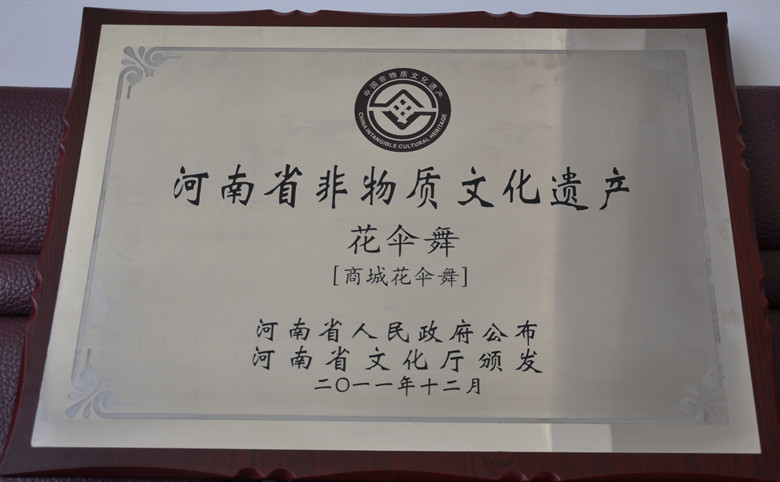 中国非物质文化遗产
CHINA INTANGIBLE CULTURAL HERITAGE
河南省非物质文化遗产
花伞舞
[商城花伞舞]
河南省人民政府公布
河南省文化厅颁发
二〇一一年十二月